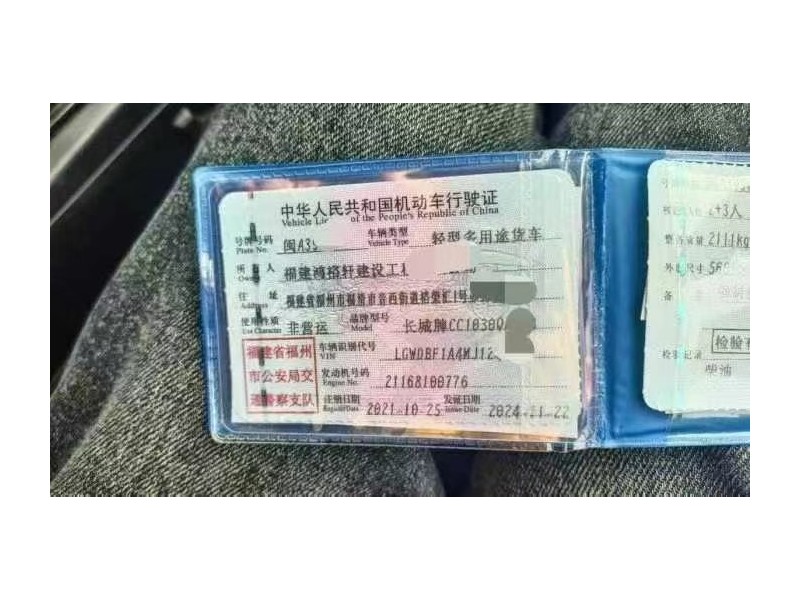 中华人民共和国机动车行驶证
Vehicle Lic of the People's Republic of China
号牌号码 Plate No. 闽A39 车辆类型 Vehicle Type 轻型多用途货车
所 人 Owner 福建鸿榕轩建设工
住 址 Address 福建省福州市福清市音西街道 汇1号
使用性质 Use Character 非营运 品牌型号 Model 长城牌CC1030Q
福建省福州
市公安局交
通警察支队
车辆识别代号 VIN LGWDBF1A4MJ12
发动机号码 Engine No. 21168100776
注册日期 Register Date 2021-10-25 发证日期 Issue Date 2024-11-22
2+3人
整 质量 2111kg
外 尺寸 56
备
检验有
检验记录
柴油